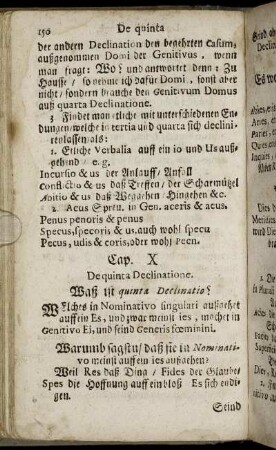 150 De quinta
der andern Declination den begehrten Casum,
außgenommen Domi der Genitivus, wenn
man fragt: Wo? und antwortet denn: Zu
Hausse / so nehme ich dafür Domi, sonst aber
nicht / sondern brauche den Genitivum Domus
auß quarta Declinatione.
3 Findet man etliche mit unterschiedenen En-
dungen / welche in tertia und quarta sich declini-
ren lassen / als:
1. Etliche Verbalia auff ein io und Us auß-
gehend / e. g.
Incursio & us der Anlauff / Anfall
Conflictio & us daß Treffen / der Scharmützel
Aditio & us daß Weggehen Hingehen &c.
2. Acus Spreu, in Gen. aceris & acus.
Penus penoris & penus
Specus, specoris & us, auch wohl specu
Pecus, udis & coris, oder wohl Pecu.
Cap. X
De quinta Declinatione.
Waß ist quinta Declinatio?
Welches in Nominativo singulari außgehet
auff ein Es, und zwar meinst ies, machet in
Genitivo Ei, und seind Generis fœminini.
Warumb sagstu / daß sie in Nominati-
vo meinst auff ein ies außgehen?
Weil Res daß Ding / Fides der Glaube /
Spes die Hoffnung auff ein bloß Es sich endi-
gen.
Seind